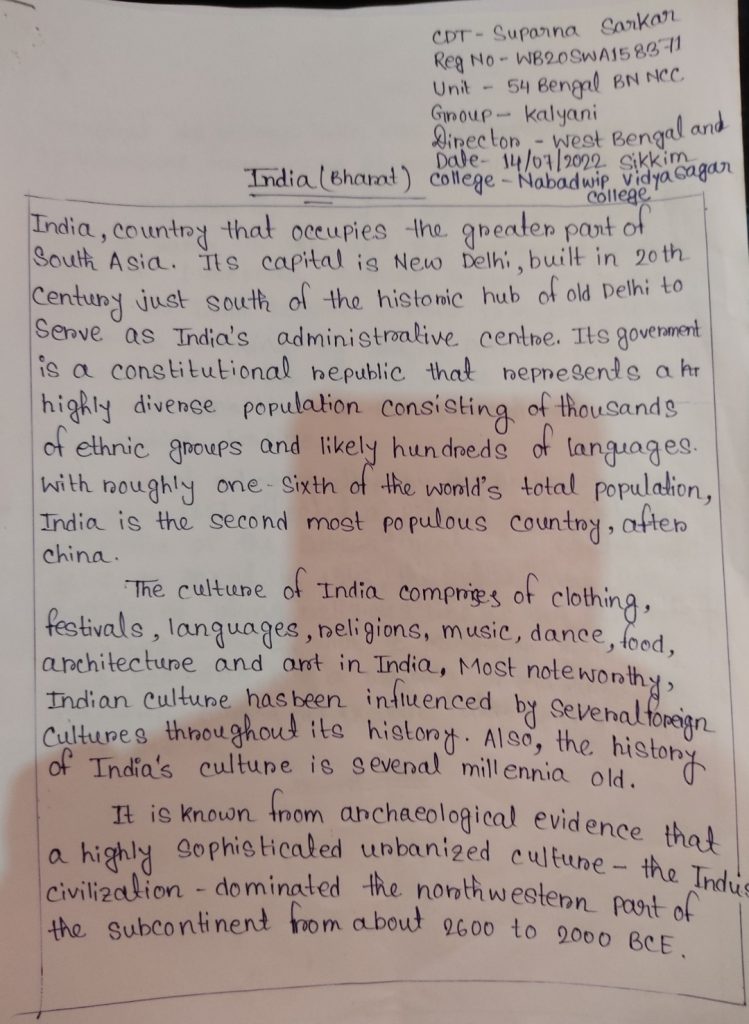 CDT - Suparna Sarkar
Reg No - WB20SWA158371
Unit - 54 Bengal BN NCC
Group - Kalyani
Director - West Bengal and
Date - 14/07/2022 Sikkim
India (Bharat) College - Nabadwip Vidyasagar
College
India, country that occupies the greater part of
South Asia. Its capital is New Delhi, built in 20th
Century just south of the historic hub of old Delhi to
Serve as India's administrative centre. Its government
is a constitutional republic that represents a
highly diverse population consisting of thousands
of ethnic groups and likely hundreds of languages.
With roughly one-sixth of the world's total population,
India is the second most populous country, after
china.
The culture of India comprises of clothing,
festivals, languages, religions, music, dance, food,
architecture and art in India, Most noteworthy,
Indian culture has been influenced by several foreign
Cultures throughout its history. Also, the history
of India's culture is several millennia old.
It is known from archaeological evidence that
a highly sophisticated urbanized culture - the Indus
civilization - dominated the northwestern part of
the subcontinent from about 2600 to 2000 BCE.